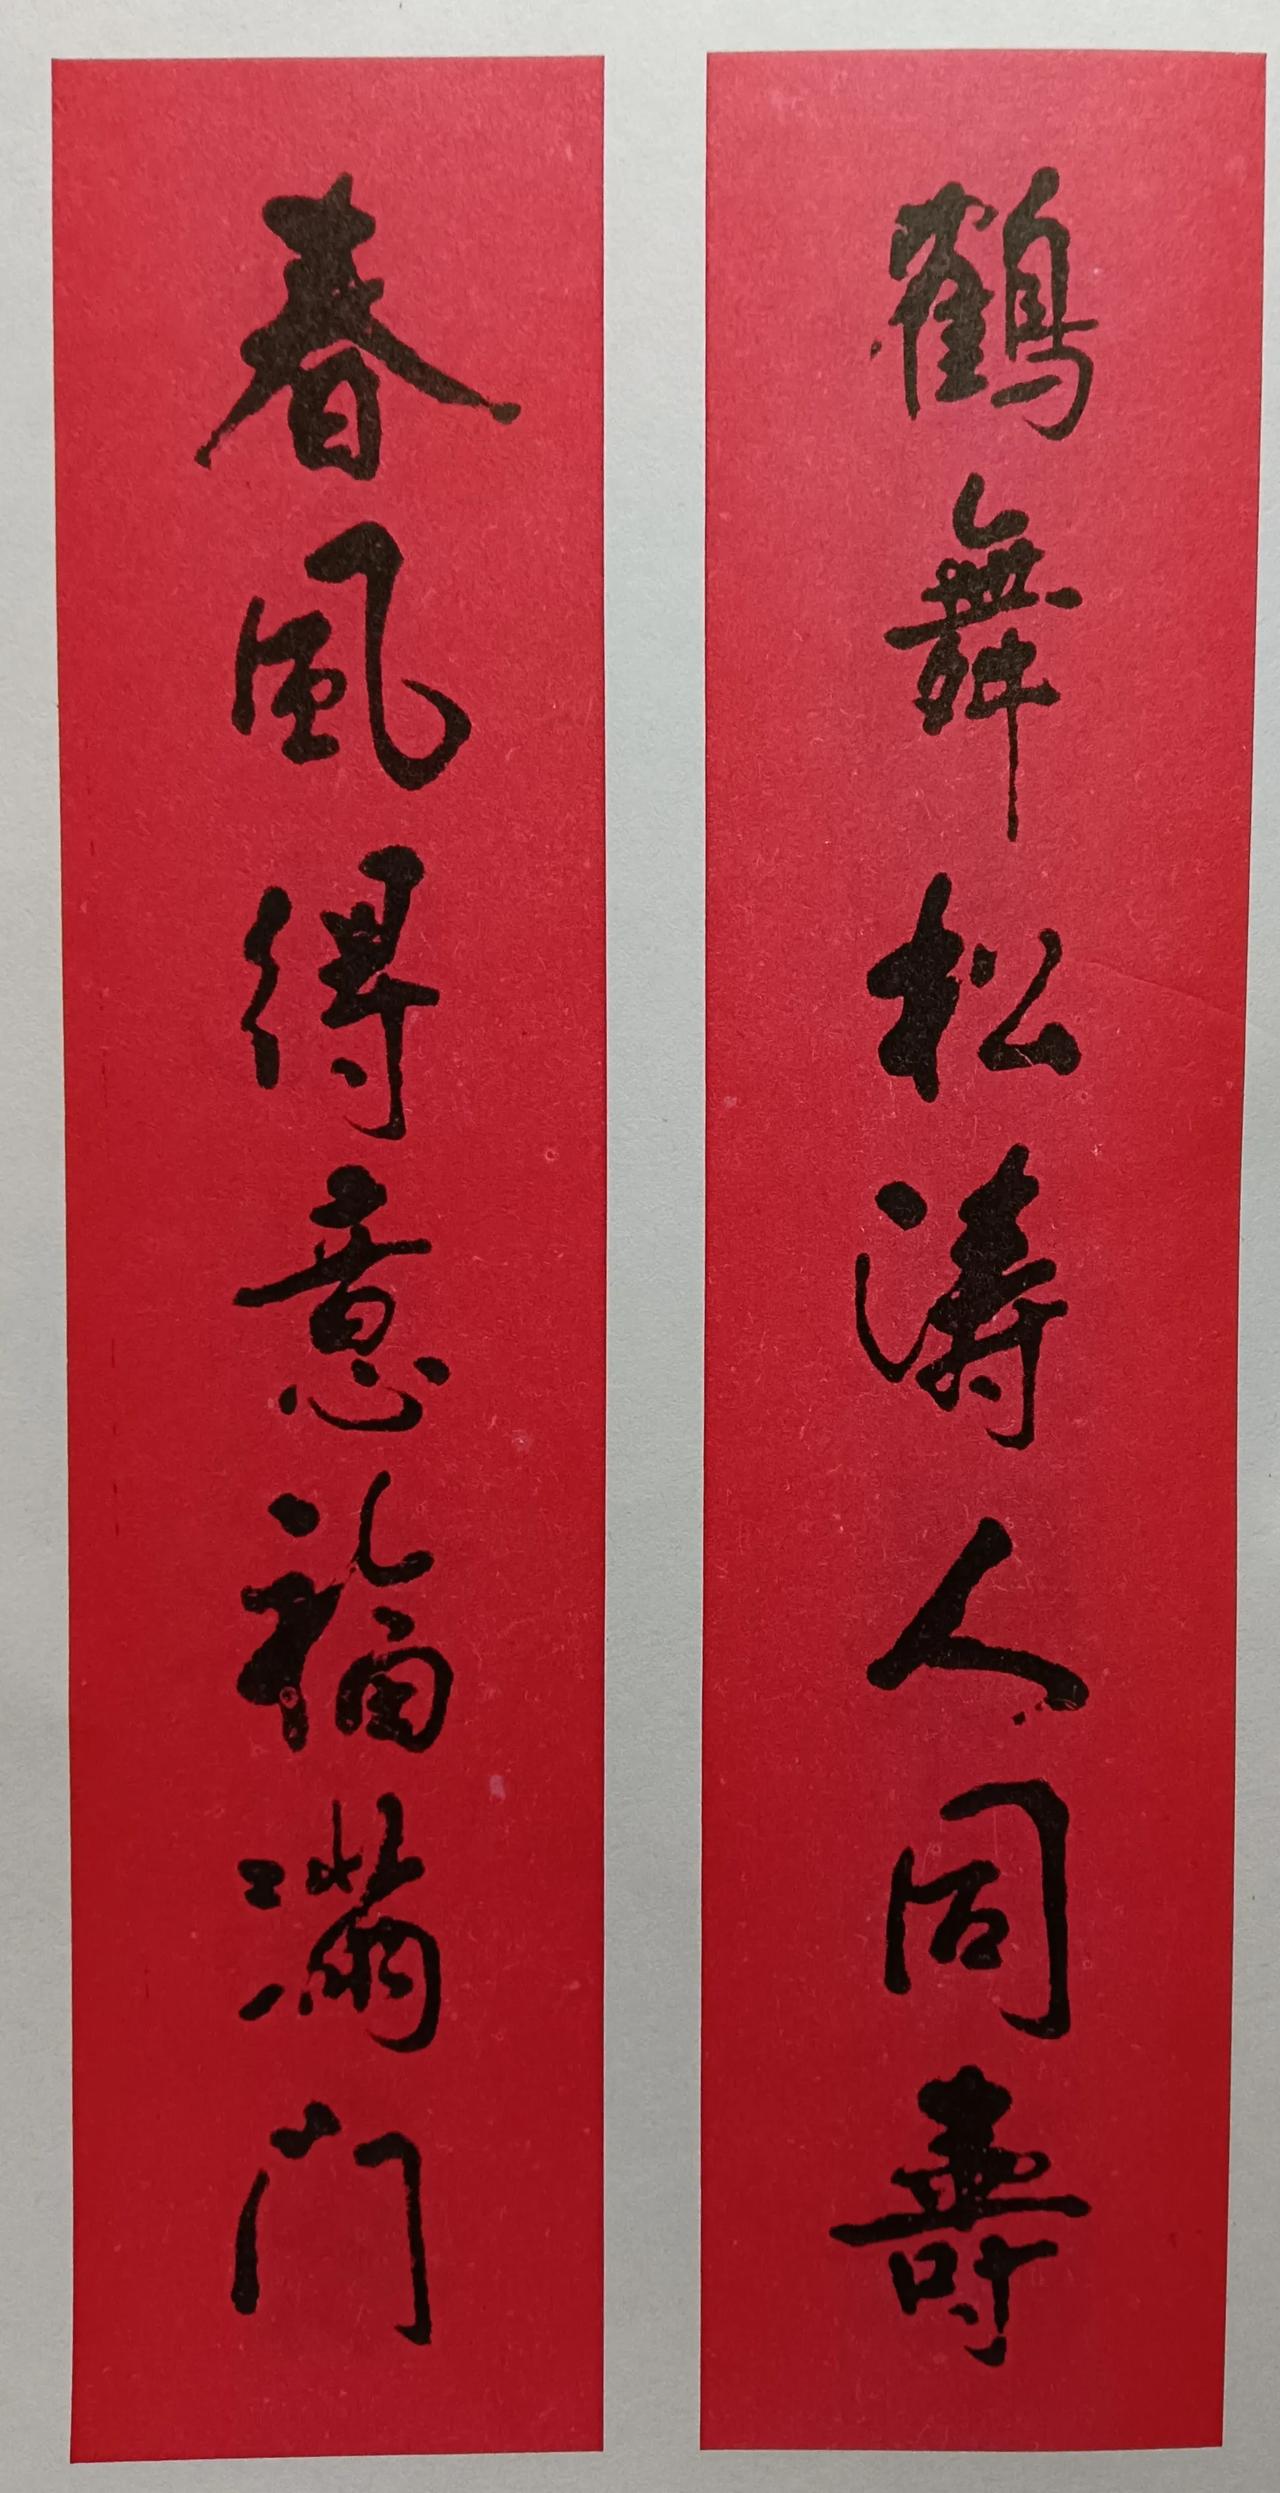 鶴舞松濤人同壽
春風得意福滿门